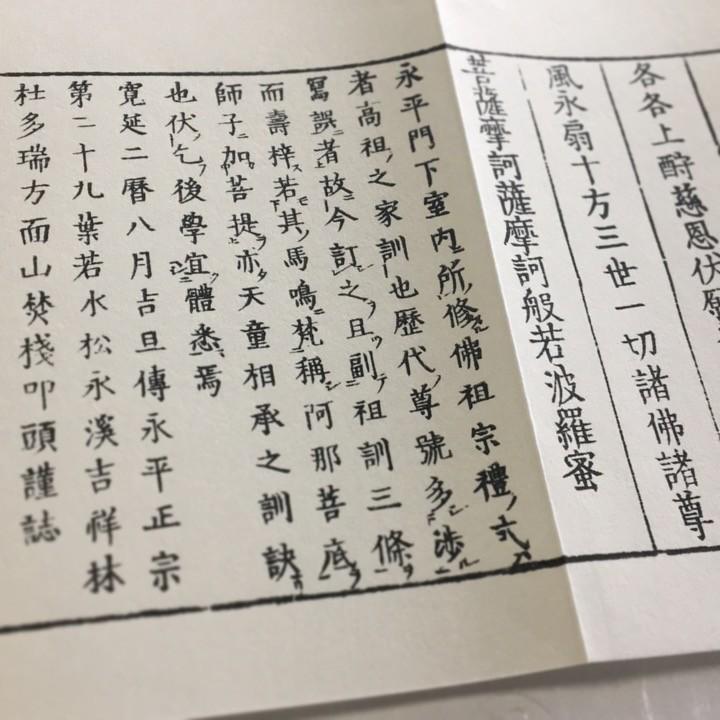 各各上酧慈恩伏
風永扇十方三世一切諸佛諸尊
菩薩摩訶薩摩訶般若波羅蜜
永平門下室内所修佛祖宗禮ノ式ハ
者高祖ノ之家訓也歷代ノ尊號多ク渉ル
寫誤ニ者故ニ今訂シ之ヲ且ツ副テ祖訓三條ヲ
而壽梓ス若キ其ノ馬鳴ニ梵稱シ阿那菩底ヲ
師子ニ加フ菩提ヲ亦タ天童相承之訓訣
也伏シテ乞フ後學宜ク體悉ス焉
寛延二曆八月吉旦傳永平正宗
第二十九葉若水松永溪吉祥林
杜多瑞方面山焚棧叩頭謹誌